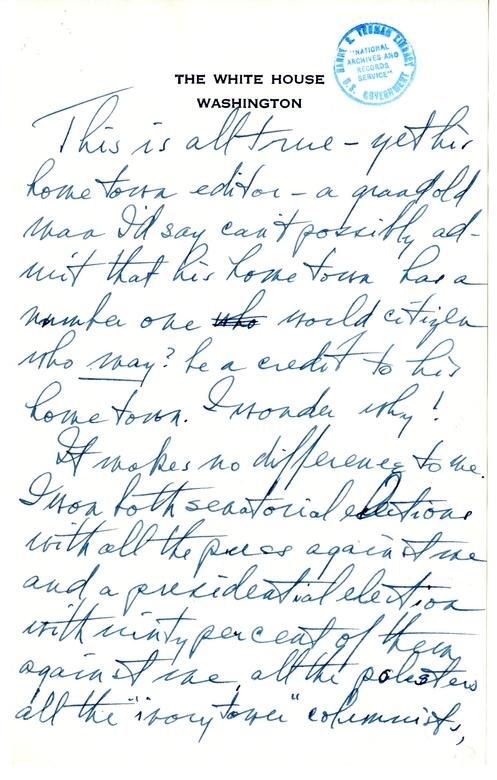 HARRY S. TRUMAN LIBRARY
"NATIONAL
ARCHIVES AND
RECORDS
SERVICE"
U.S. GOVERNMENT
THE WHITE HOUSE
WASHINGTON
This is all true – yet his
home town editor – a grand old
man I'd say can't possibly ad-
mit that his home town has a
number one who world citizen
who may? be a credit to his
home town. I wonder why!
It makes no difference to me.
I won both senatorial elections
with all the press against me
and a presidential election
with ninty percent of them
against me, all the polesters
all the "ivory tower" columnists,